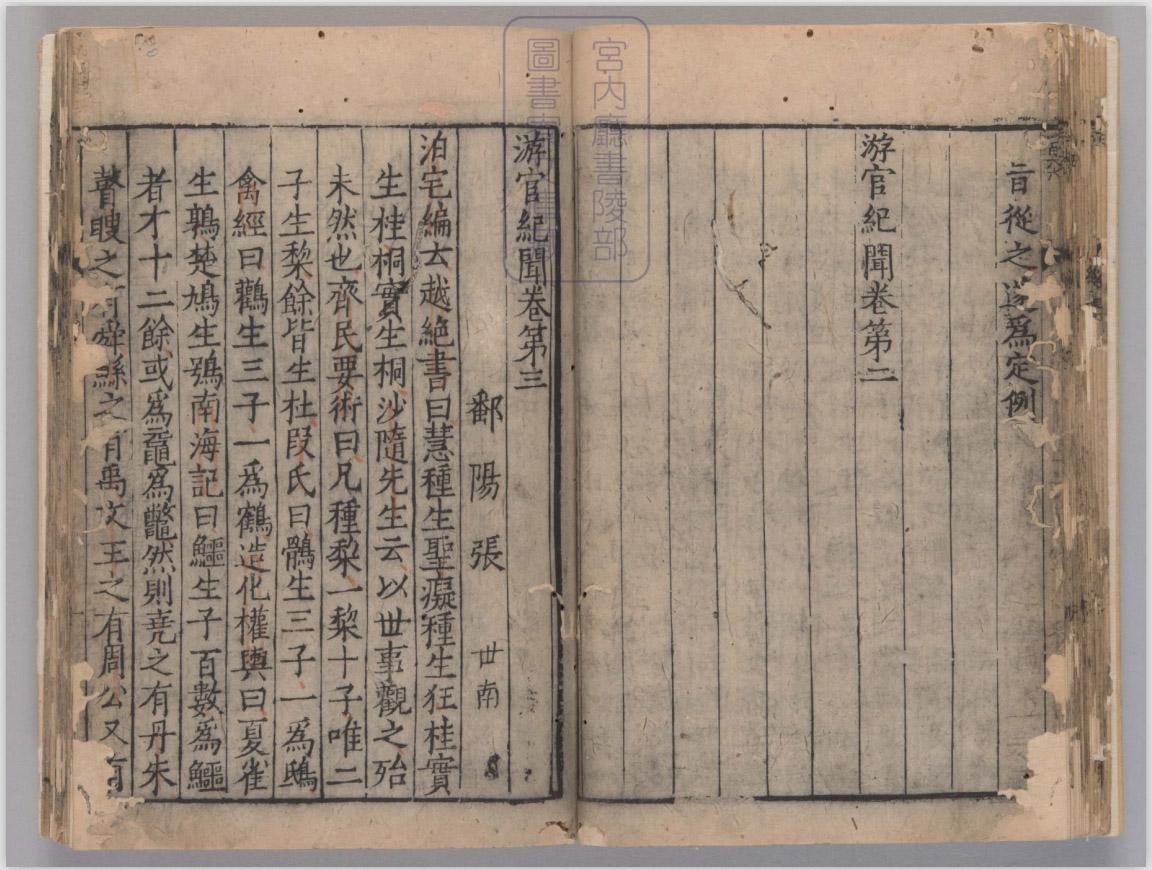 旨從之遂爲定例
游宦紀聞卷第二
宮內廳書陵部
圖書
游宦紀聞卷第三
鄱陽張世南
泊宅編云越絶書曰慧種生聖癡種生狂桂實
生桂桐實生桐沙隨先生云以世事觀之殆
未然也齊民要術曰凡種棃一棃十子唯二
子生棃餘皆生杜段氏曰鶻生三子一爲鴟
禽經曰鸛生三子一爲鶴造化權輿曰夏雀
生鶉楚鳩生鴞南海記曰鱷生子百數爲鱷
者才十二餘或爲黿爲鼈然則堯之有丹朱
瞽瞍之有舜鯀之有禹文王之有周公又有